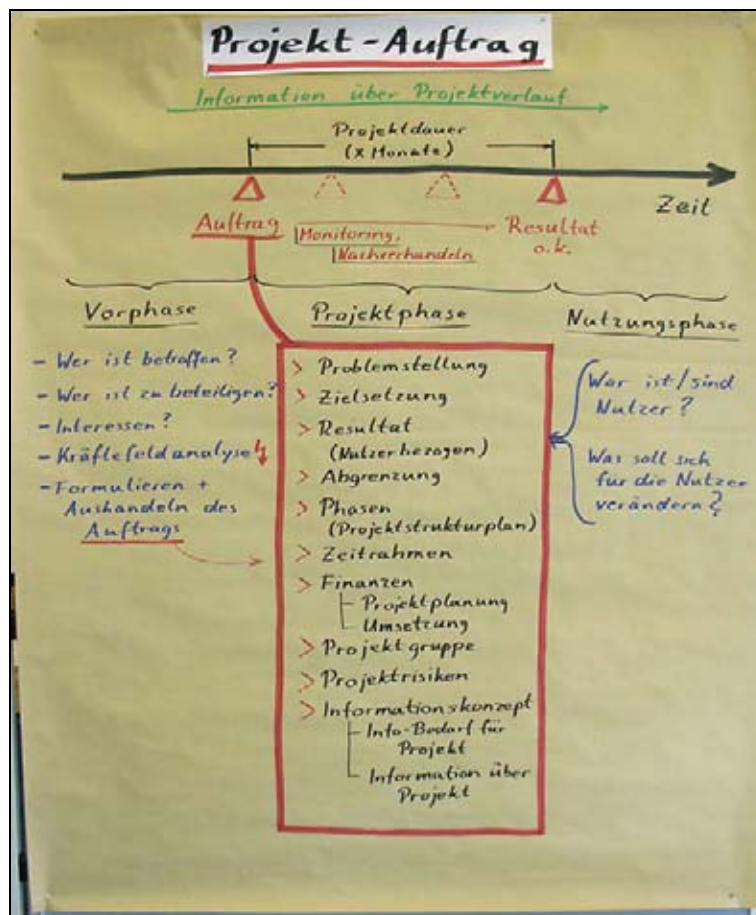 Projekt-Auftrag
Information über Projektverlauf
Projektdauer
(x Monate)
Zeit
Auftrag
Monitoring,
Nachverhandeln
Resultat
o.k.
Vorphase
Projektphase
Nutzungsphase
- Wer ist betroffen?
- Wer ist zu beteiligen?
- Interessen?
- Kräftefeldanalyse
- Formulieren +
Aushandeln des
Auftrags
> Problemstellung
> Zielsetzung
> Resultat
(Nutzerbezogen)
> Abgrenzung
> Phasen
(Projektstrukturplan)
> Zeitrahmen
> Finanzen
- Projektplanung
- Umsetzung
> Projektgruppe
> Projektrisiken
> Informationskonzept
- Info-Bedarf für
Projekt
- Information über
Projekt
Wer ist/sind
Nutzer?
Was soll sich
für die Nutzer
verändern?